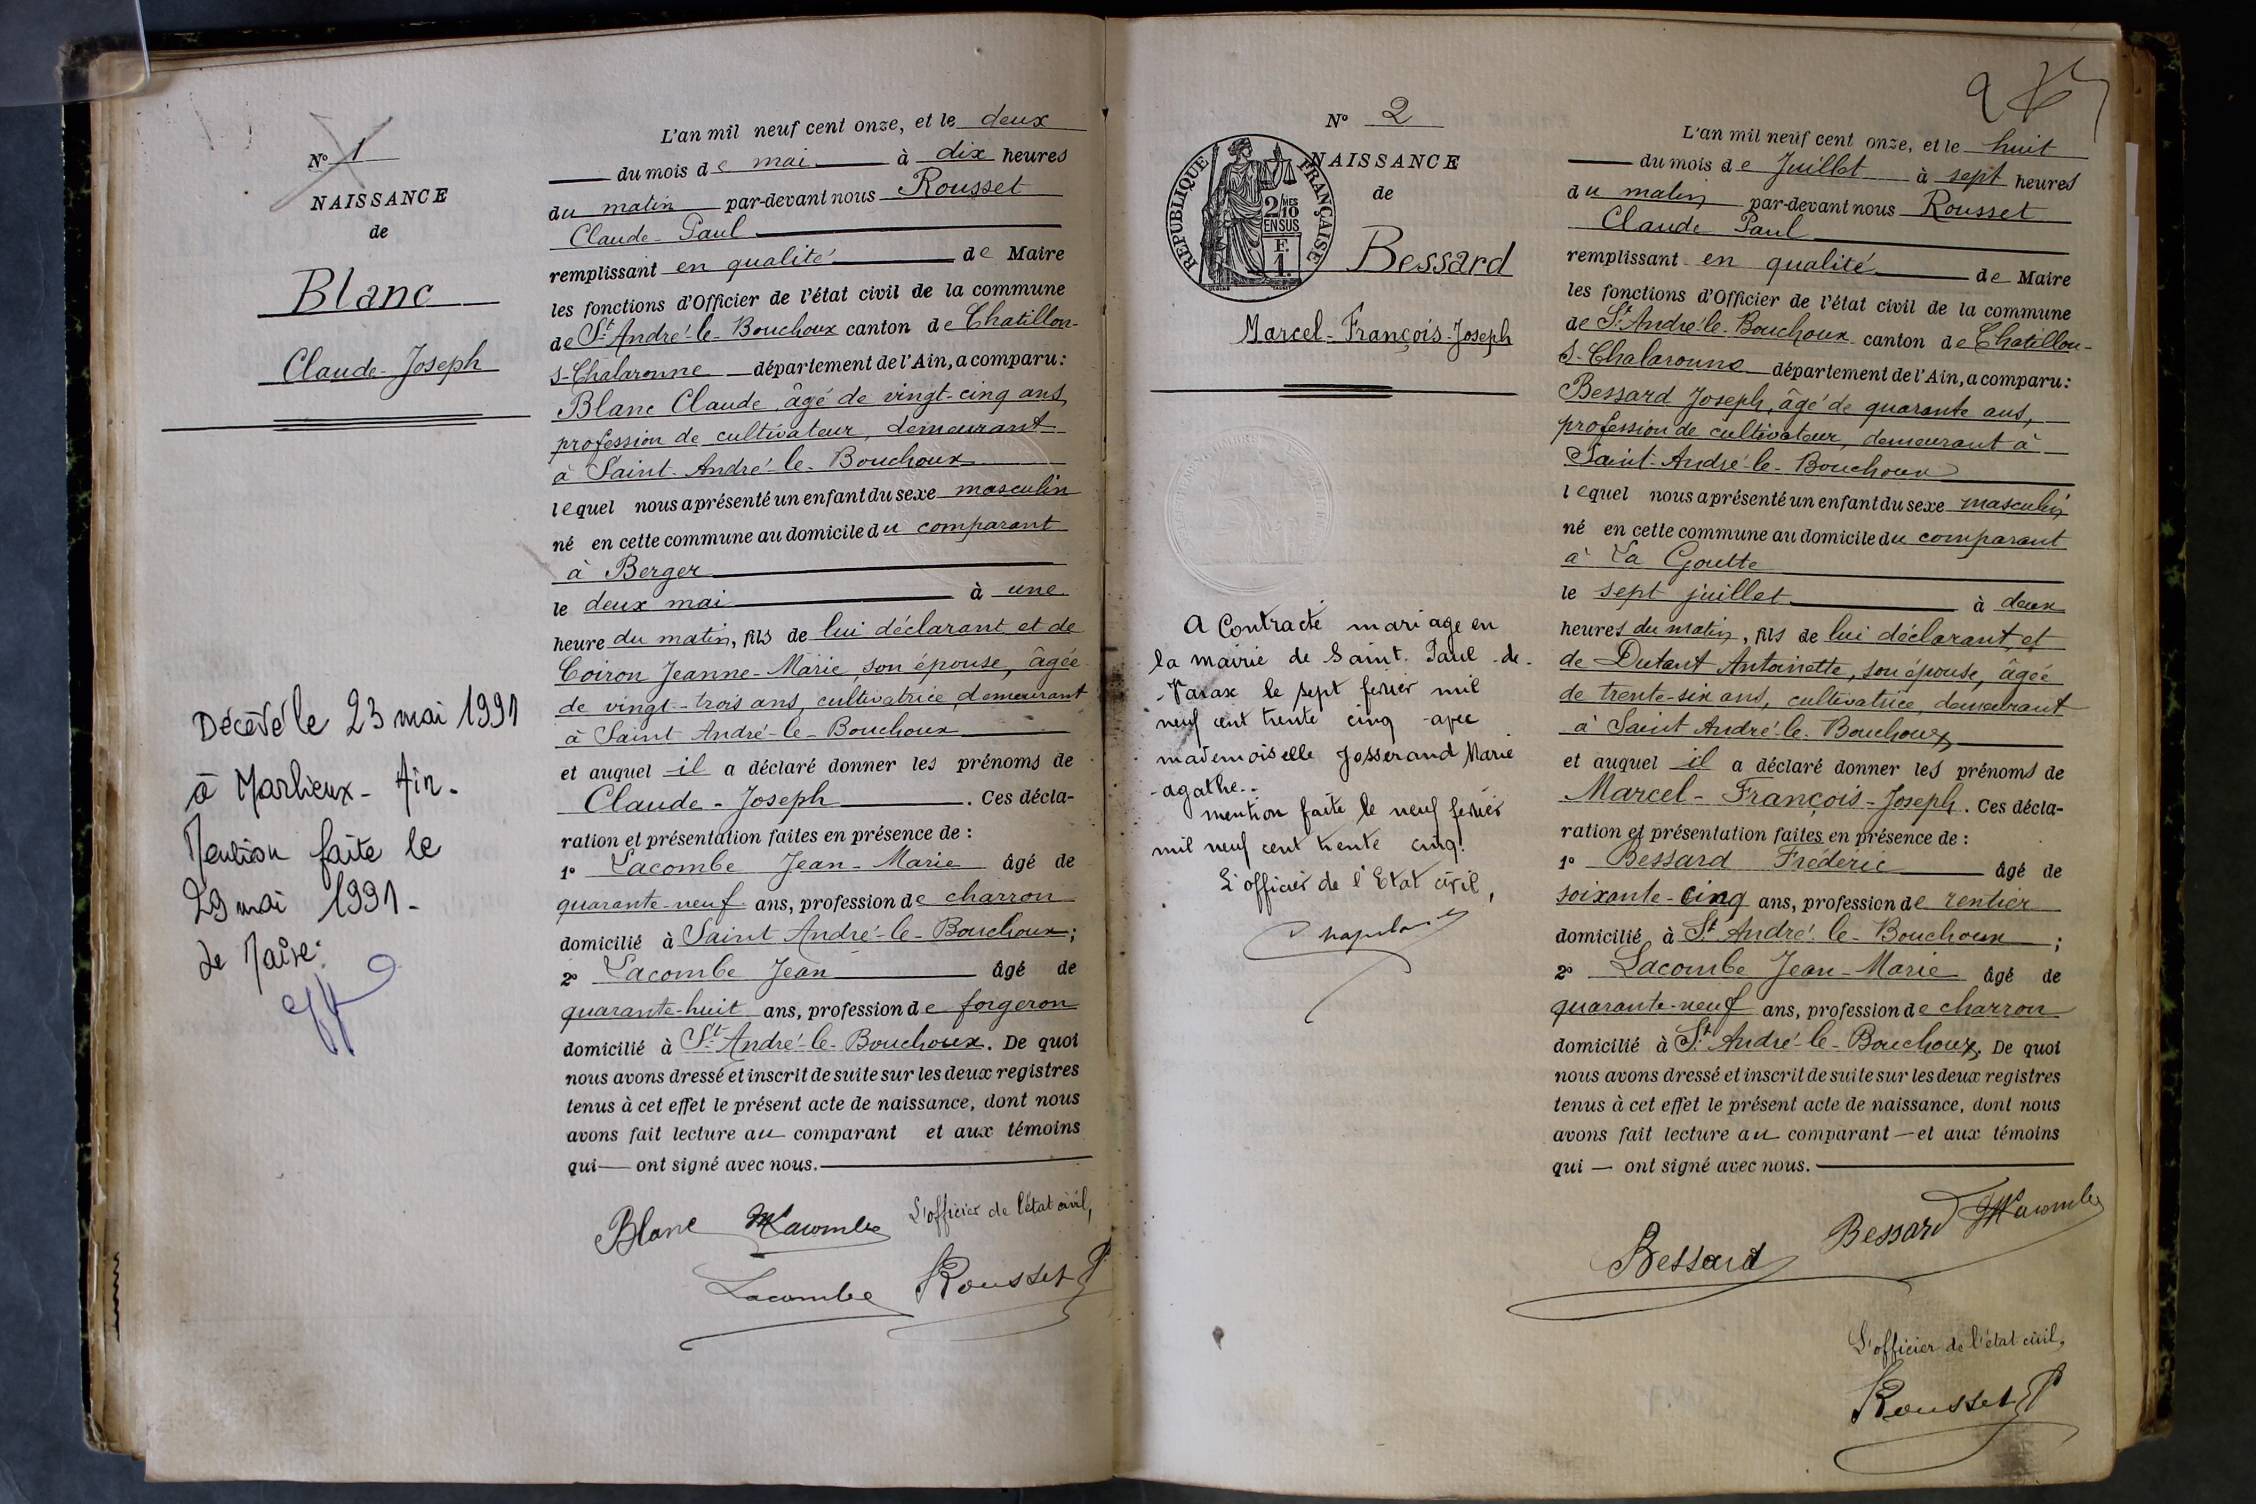 Nº 1
NAISSANCE
de
Blanc
Claude-Joseph
Décédé le 23 mai 1991
à Marlieux - Ain.
Mention faite le
29 mai 1991.
Le Maire:
L'an mil neuf cent onze, et le deux
du mois de mai à dix heures
du matin par-devant nous Rousset
Claude-Paul
remplissant en qualité de Maire
les fonctions d'Officier de l'état civil de la commune
de St André-le-Bouchoux canton de Chatillon-
s-Chalaronne département de l'Ain, a comparu:
Blanc Claude, âgé de vingt-cinq ans,
profession de cultivateur, demeurant
à Saint-André-le-Bouchoux
lequel nous a présenté un enfant du sexe masculin
né en cette commune au domicile du comparant
à Berger
le deux mai à une
heure du matin, fils de lui déclarant et de
Coiron Jeanne-Marie, son épouse, âgée
de vingt-trois ans, cultivatrice, demeurant
à Saint André-le-Bouchoux
et auquel il a déclaré donner les prénoms de
Claude-Joseph. Ces décla-
ration et présentation faites en présence de:
1º Lacombe Jean-Marie âgé de
quarante-neuf ans, profession de charron
domicilié à Saint André-le-Bouchoux;
2º Lacombe Jean âgé de
quarante-huit ans, profession de forgeron
domicilié à St André-le-Bouchoux. De quoi
nous avons dressé et inscrit de suite sur les deux registres
tenus à cet effet le présent acte de naissance, dont nous
avons fait lecture au comparant et aux témoins
qui ont signé avec nous.
Blanc JMLacombe L'officier de l'état civil,
Lacombe Rousset P
Nº 2
NAISSANCE
de
RÉPUBLIQUE FRANÇAISE
2/10 MES
EN SUS
F.
1.
Bessard
Marcel-François-Joseph
A Contracté mariage en
la mairie de Saint-Paul-de-
-Varax le sept fevrier mil
neuf cent trente cinq avec
mademoiselle Josserand Marie
-agathe-.
mention faite le neuf fevrier
mil neuf cent trente cinq.
L'officier de l'Etat civil,
L'an mil neuf cent onze, et le huit
du mois de Juillet à sept heures
du matin par-devant nous Rousset
Claude Paul
remplissant en qualité de Maire
les fonctions d'Officier de l'état civil de la commune
de St André-le-Bouchoux canton de Chatillon-
s-Chalaronne département de l'Ain, a comparu:
Bessard Joseph, âgé de quarante ans,
profession de cultivateur, demeurant à
Saint-André-le-Bouchoux
lequel nous a présenté un enfant du sexe masculin
né en cette commune au domicile du comparant
à La Goutte
le sept juillet à deux
heures du matin, fils de lui déclarant et
de Dutant Antoinette, son épouse, âgée
de trente-six ans, cultivatrice, demeurant
à Saint André-le-Bouchoux
et auquel il a déclaré donner les prénoms de
Marcel-François-Joseph. Ces décla-
ration et présentation faites en présence de:
1º Bessard Frédéric âgé de
soixante-cinq ans, profession de rentier
domicilié à St André-le-Bouchoux;
2º Lacombe Jean-Marie âgé de
quarante-neuf ans, profession de charron
domicilié à St André-le-Bouchoux. De quoi
nous avons dressé et inscrit de suite sur les deux registres
tenus à cet effet le présent acte de naissance, dont nous
avons fait lecture au comparant et aux témoins
qui ont signé avec nous.
Bessard Bessard JMLacombe
L'officier de l'état civil,
Rousset P